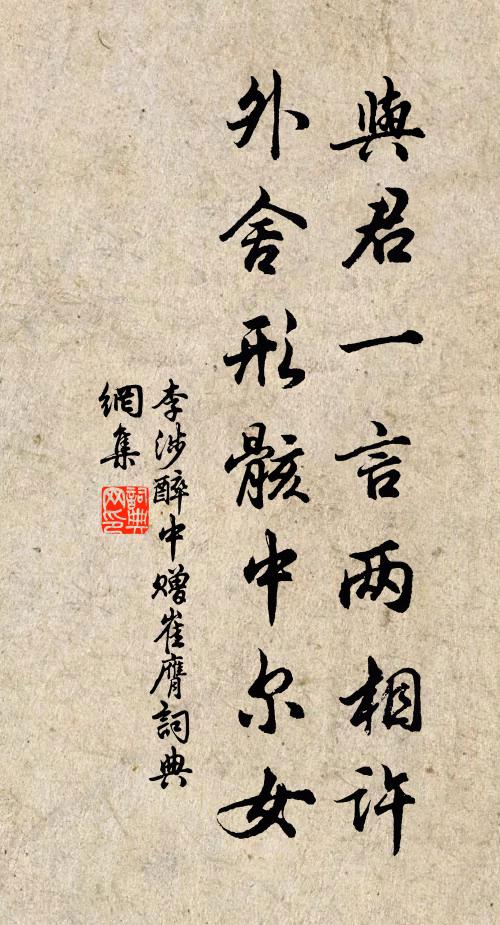 與君一言两相许
外舍形骸中尔女
李涉醉中赠崔膺詞典
網集
詞典
网印